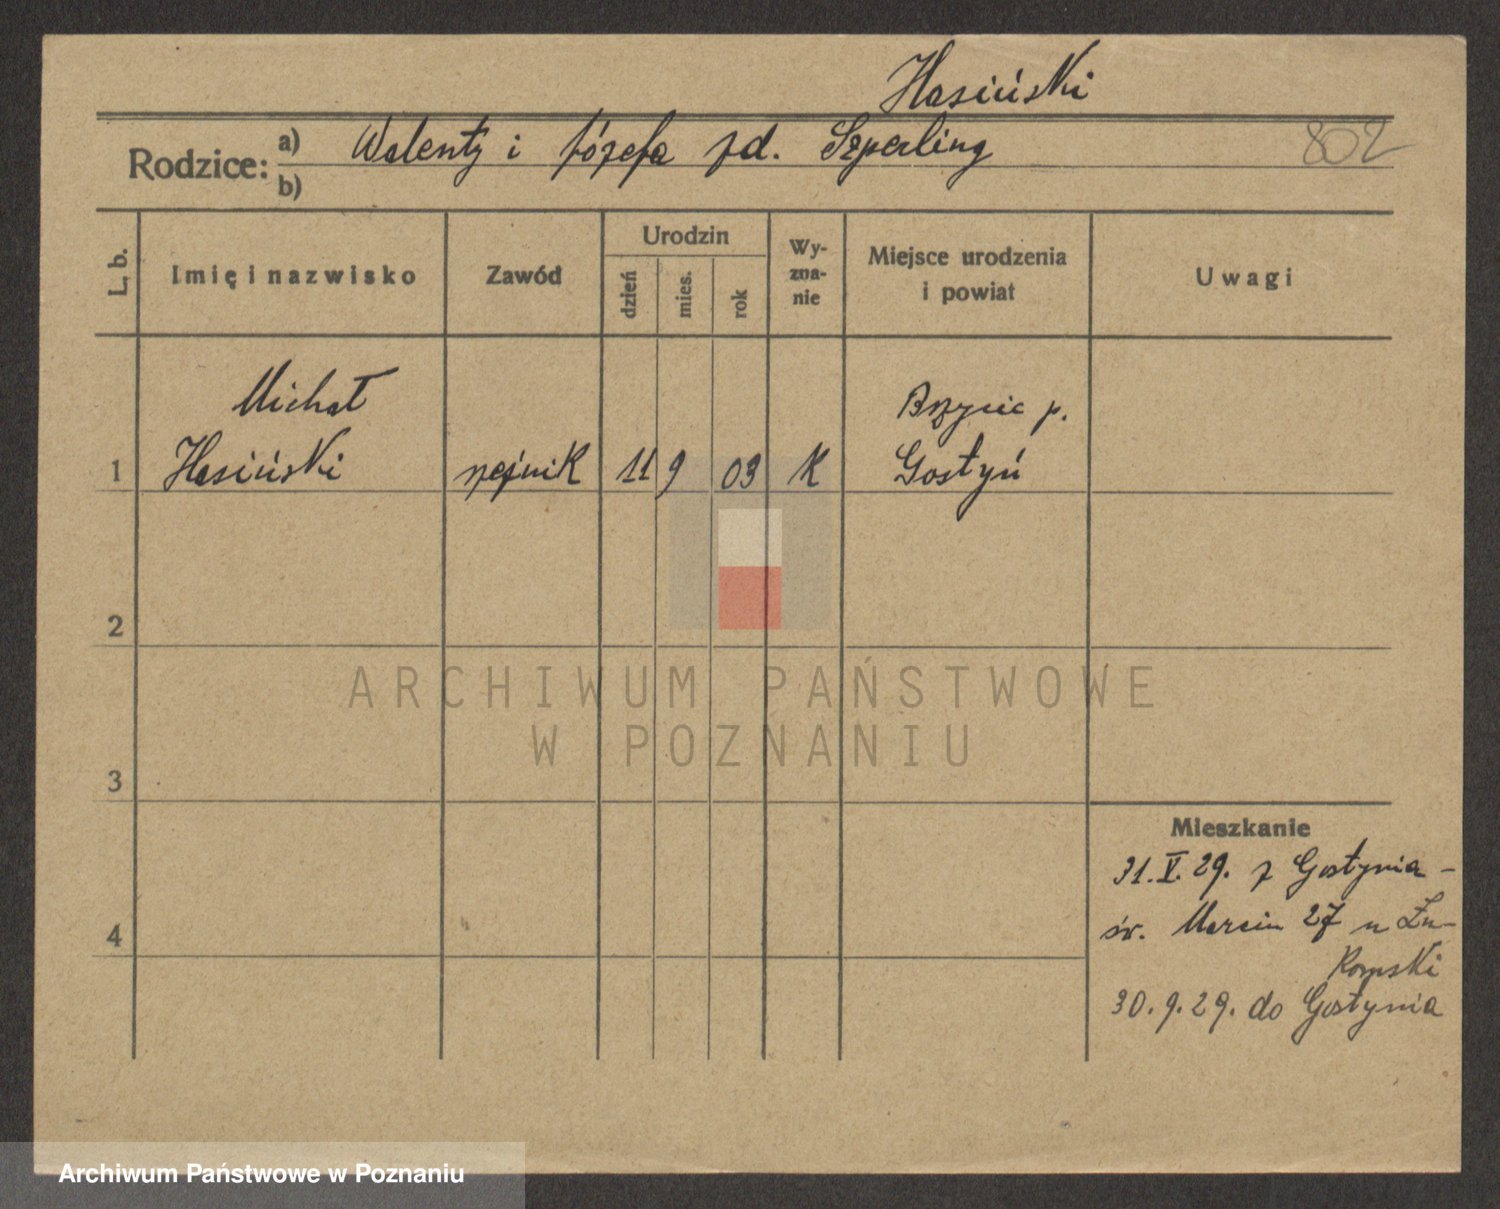 Hasiński
Rodzice: a) Walenty i Józefa zd. Szperling
802
b)
L. b.
Imię i nazwisko
Zawód
Urodzin
dzień
mies.
rok
Wy-
zna-
nie
Miejsce urodzenia
i powiat
Uwagi
Michał
p.
1 Hasiński rzeźnik 11 9 03 K Gostyń
2
ARCHIWUM PAŃSTWOWE
W POZNANIU
3
Mieszkanie
31.V.29. z Gostynia -
św. Marcin 27 u
4
30.9.29. do Gostynia
Archiwum Państwowe w Poznaniu